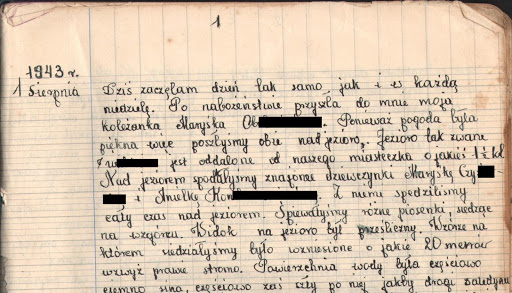 1
1943 r.
1 Sierpnia Dziś zaczęłam dzień tak samo jak i w każdą
niedzielę. Po nabożeństwie przyszła do mnie moja
koleżanka Maryśka Ob. Ponieważ pogoda była
piękna więc poszłyśmy obie nad jezioro. Jezioro tak zwane
jest oddalone od naszego miasteczka o jakieś 1½ kl.
Nad jeziorem spotkałyśmy znajome dziewczynki Maryśkę Czy
i Anielkę Kon. Z nimi spędziliśmy
cały czas nad jeziorem. Śpiewałyśmy różne piosenki, siedząc
na wzgórzu. Widok na jezioro był prześliczny. Wzgórze na
którem siedziałyśmy było wzniesione o jakie 20 metrów
wzwyż prawie stromo. Powierzchnia wody była częściowo
ciemno sina, częściowo zaś szły po niej jakby drogi